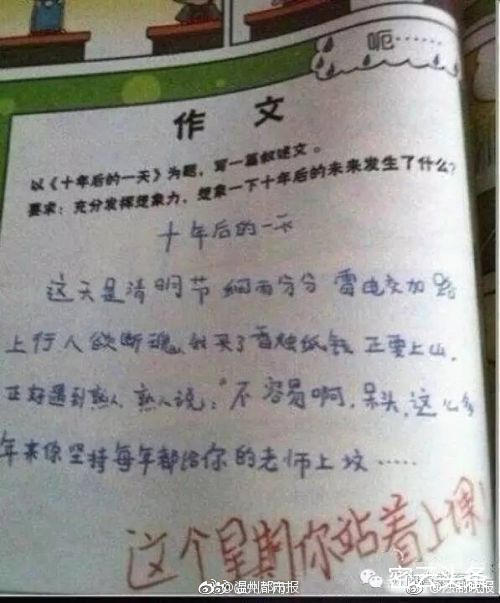 呃……
作文
以《十年后的一天》为题，写一篇叙述文。
要求：充分发挥想象力，想象一下十年后的未来发生了什么？
十年后的一天
这天是清明节 细雨分分 雷电交加 路
上行人欲断魂，我买了香烛纸钱 正要上山，
正好遇到熟人，熟人说："不容易啊，呆头，这么多
年来你坚持每年都给你的老师上坟……
这个星期你站着上课！
密云头条
@温州都市报
@法制晚报